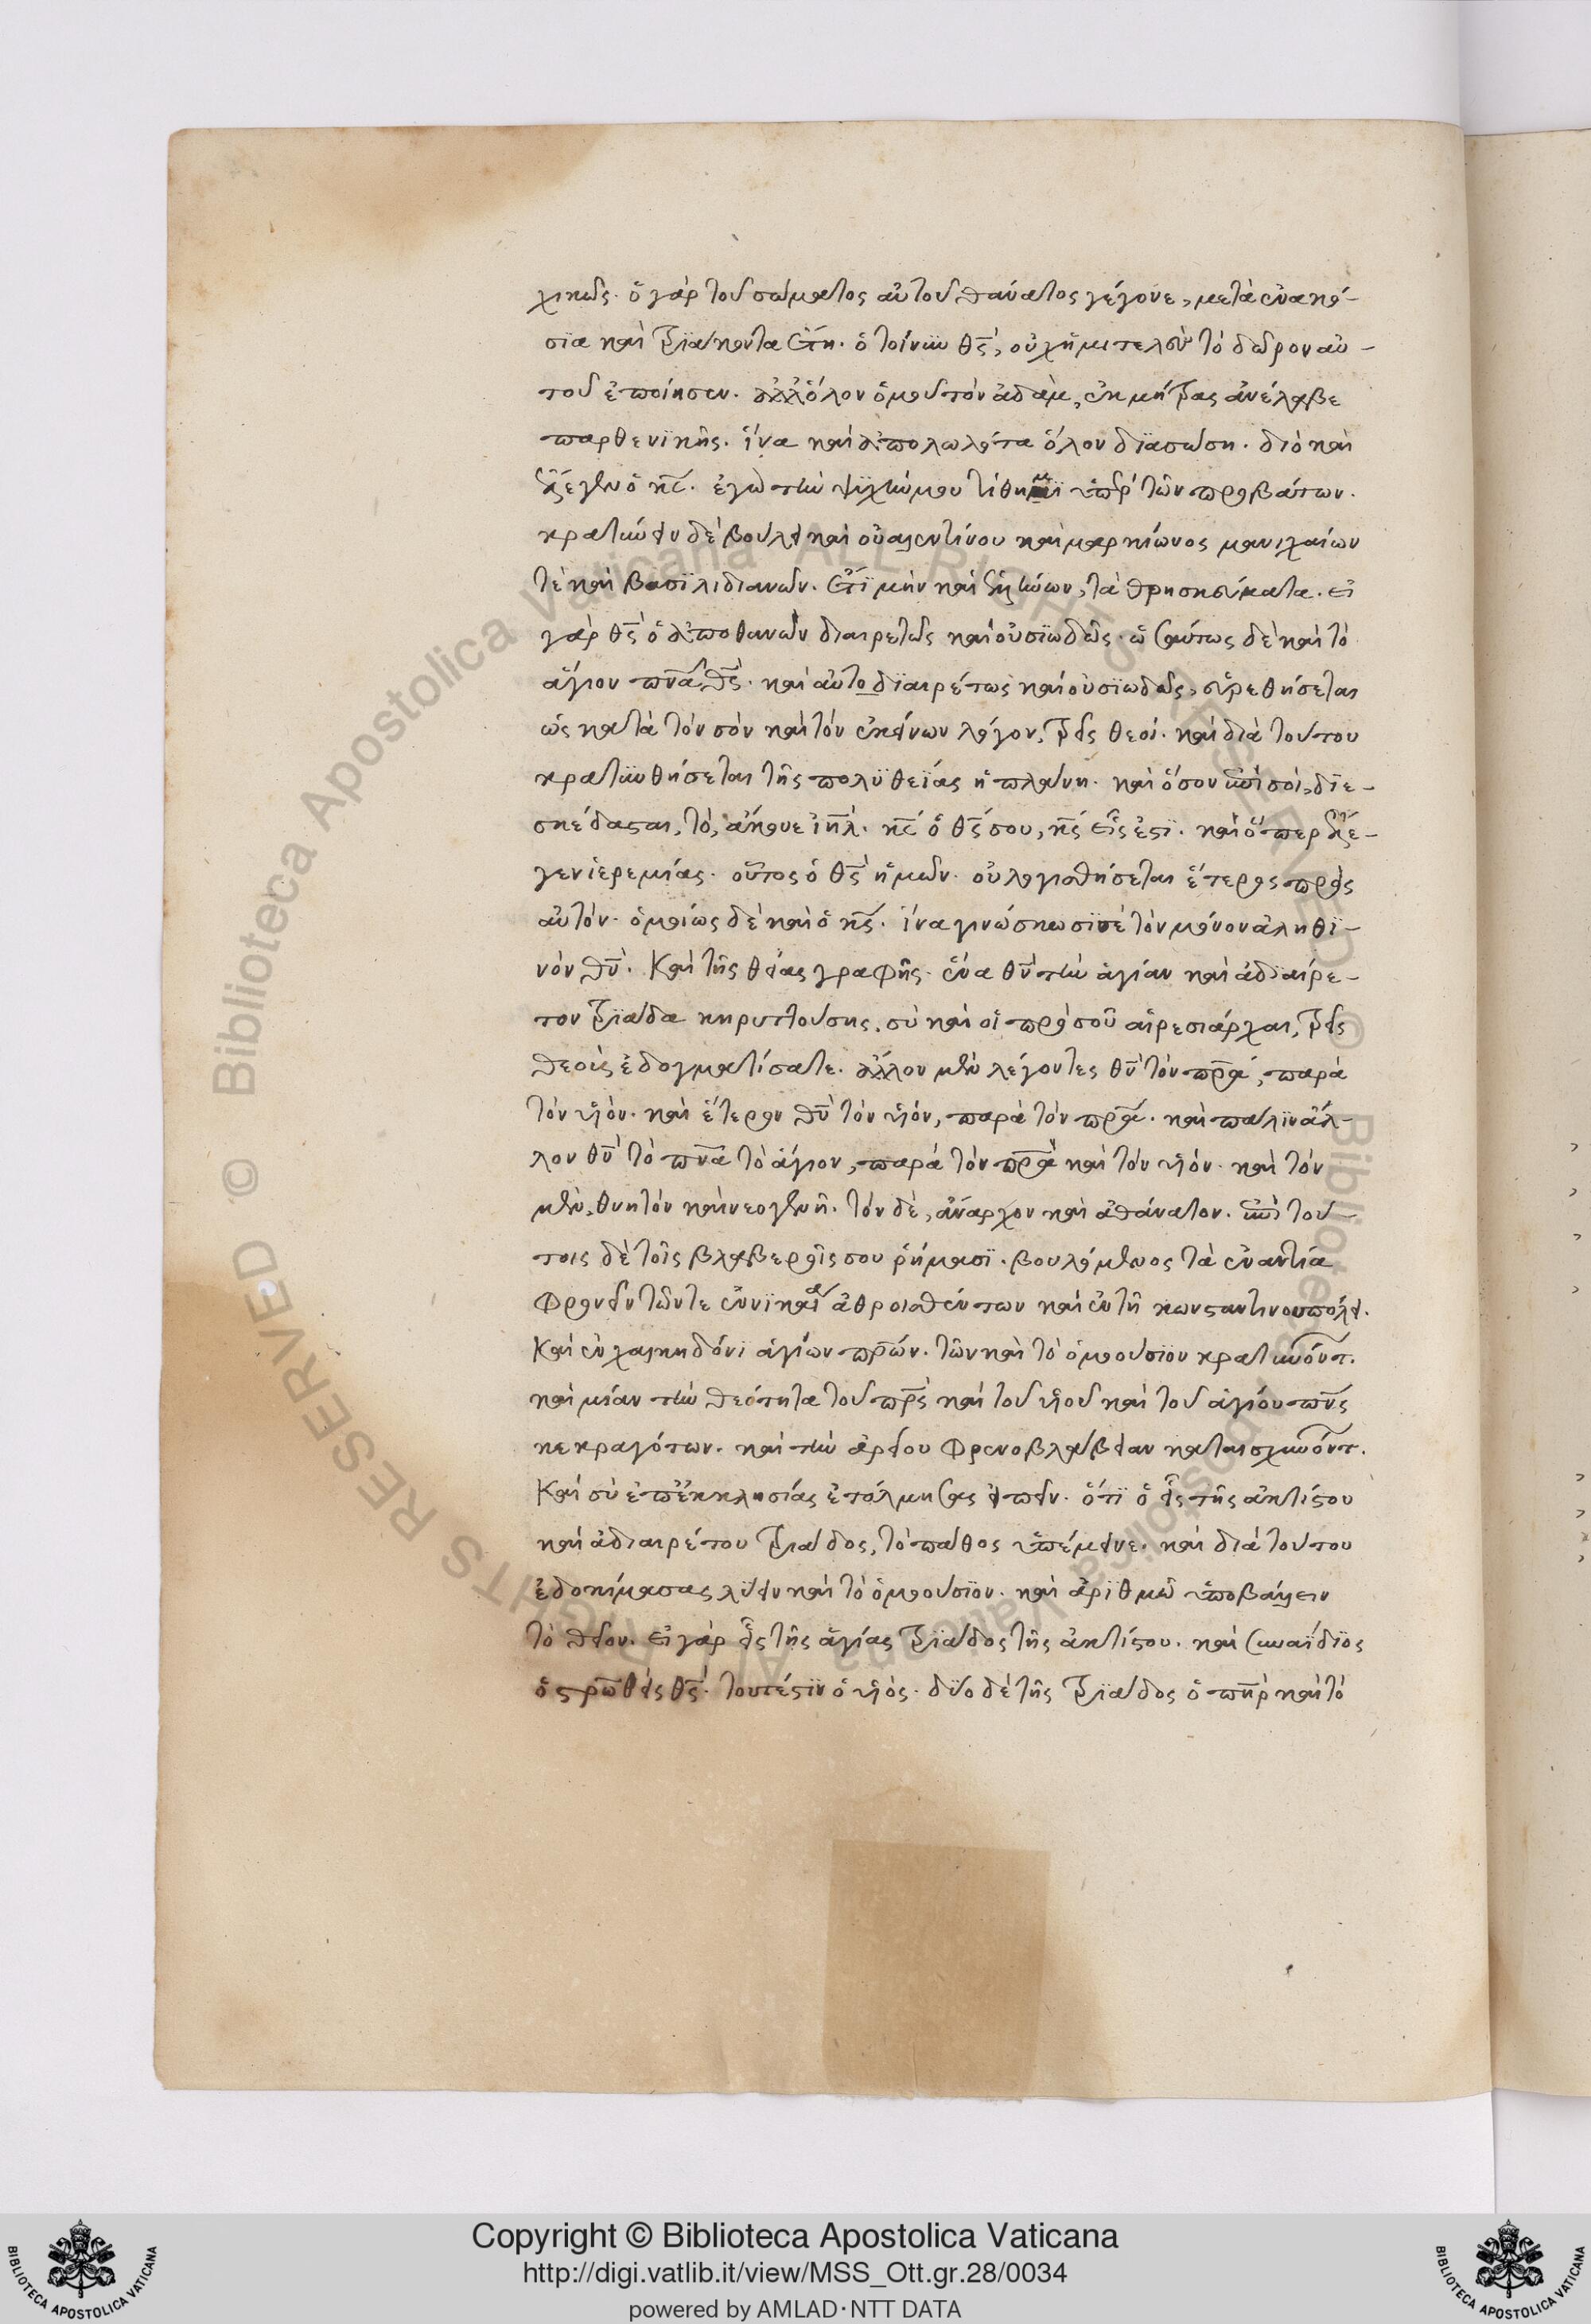 χικῶς· ὁ γὰρ τοῦ σώματος αὐτοῦ θάνατος γέγονε, μετὰ ἐνακό-
σϊα καὶ τρϊάκοντα ἔτη. ὁ τοίνυν θς, οὐχ ἡμιτελοῦν τὸ δῶρον αὐ-
τοῦ ἐποίησεν. ἀλλ' ὅλον ὁμοῦ τὸν ἀδὰμ, ἐκ μήτρας ἀνέλαβε
παρθενϊκῆς. ἵνα καὶ ἀπολωλότα ὅλον δϊασώση. διὸ καὶ
ἔλεγεν ὁ κς. ἐγὼ τὴν ψυχήν μου τίθημϊ ὑπὲρ τῶν προβάτων.
κρατύνειν δὲ βούλει καὶ οὐαλεντίνου καὶ μαρκίωνος μανιχαίων
τὲ καὶ βασϊλιδιανῶν. ἔτϊ μὴν καὶ ἑλλήνων, τὰ θρησκεύματα. εἰ
γὰρ θς ὁ ἀποθανὼν διαιρετῶς καὶ οὐσϊωδῶς· ὡσαύτως δὲ καὶ τὸ
ἅγιον πνα θς. καὶ αὐτὸ δϊαιρέτως καὶ οὐσϊωδῶς, εὑρεθήσεται
ὡς κατὰ τὸν σὸν καὶ τὸν ἐκείνων λόγον, τρεῖς θεοί. καὶ διὰ τούτου
κρατϋνθήσεται τῆς πολϋθεΐας ἡ πλάνη. καὶ ὅσον ἐπὶ σοὶ, δϊε-
σκέδασαι, τὸ, ἄκουε ἰηλ. κς ὁ θς σου, κς εἷς ἐστϊ. καὶ ὅπερ ἔλε-
γεν ἱερεμίας. οὗτος ὁ θς ἡμῶν. οὐ λογισθήσεται ἕτερος πρὸς
αὐτόν. ὁμοίως δὲ καὶ ὁ κς. ἵνα γινώσκωσϊ σὲ τὸν μόνον ἀληθϊ-
νὸν θν. Καὶ τῆς θείας γραφῆς. ἕνα θν τὴν ἁγίαν καὶ ἀδϊαίρε-
τον τρϊάδα κηρυττούσης, σὺ καὶ οἱ πρὸ σοῦ αἱρεσιάρχαι, τρεῖς
θεοὺς ἐδογματίσατε. ἄλλον μὲν λέγοντες θν τὸν πρα, παρὰ
τὸν υἱόν. καὶ ἕτερον θν τὸν υἱόν, παρὰ τὸν πρα. καὶ πάλϊν ἄλ-
λον θν τὸ πνα τὸ ἅγιον, παρὰ τὸν πρα καὶ τὸν υἱόν. καὶ τὸν
μὲν, θνητὸν καὶ νεογενῆ. τὸν δὲ, ἄναρχον καὶ ἀθάνατον. ἐπὶ τού-
τοις δὲ τοῖς βλαβεροῖς σου ῥήμασϊ. βουλόμενος τὰ ἐναντία
φρονεῖν τῶν τε ἐν νϊκαία ἀθροισθέντων καὶ ἐν τῆ κωνσταντινουπόλει.
Καὶ ἐν χαλκηδόνϊ ἁγίων πρων. τῶν καὶ τὸ ὁμοούσϊον κρατυνόντ.
καὶ μίαν τὴν θεότητα τοῦ πρς καὶ τοῦ υἱοῦ καὶ τοῦ ἁγίου πνς
κεκραγότων. καὶ τὴν ἀρείου φρενοβλάβειαν καταισχυνόντ.
Καὶ σὺ ἐπ' ἐκκλησίας ἐτόλμησας εἰπεῖν. ὅτϊ ὁ εἷς τῆς ἀκτίστου
καὶ ἀδιαιρέτου τριάδος, τὸ πάθος ὑπέμεινε. καὶ διὰ τούτου
ἐδοκίμασας λύειν καὶ τὸ ὁμοούσϊον. καὶ ἀρϊθμῶ ὑποβάλλειν
τὸ θεῖον. εἰ γὰρ εἷς τῆς ἁγίας τρϊάδος τῆς ἀκτίστου. καὶ συναΐδϊος
ὁ στρωθεὶς θς. τουτέστϊν ὁ υἱός. δύο δὲ τῆς τρϊάδος ὁ πηρ καὶ τὸ